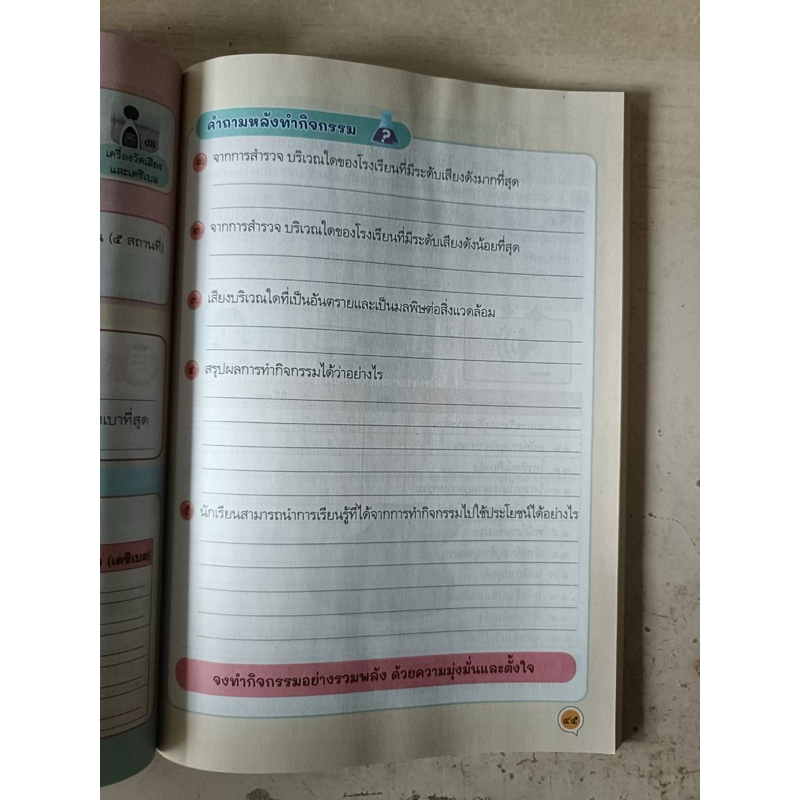 dB
เครื่องวัดเสียง
และเดซิเบล
(๕ สถานที่)
เบาที่สุด
(เดซิเบล)
คำถามหลังทำกิจกรรม
?
๑ จากการสำรวจ บริเวณใดของโรงเรียนที่มีระดับเสียงดังมากที่สุด
๒ จากการสำรวจ บริเวณใดของโรงเรียนที่มีระดับเสียงดังน้อยที่สุด
๓ เสียงบริเวณใดที่เป็นอันตรายและเป็นมลพิษต่อสิ่งแวดล้อม
๔ สรุปผลการทำกิจกรรมได้ว่าอย่างไร
๕ นักเรียนสามารถนำการเรียนรู้ที่ได้จากการทำกิจกรรมไปใช้ประโยชน์ได้อย่างไร
จงทำกิจกรรมอย่างรวมพลัง ด้วยความมุ่งมั่นและตั้งใจ
๔๕